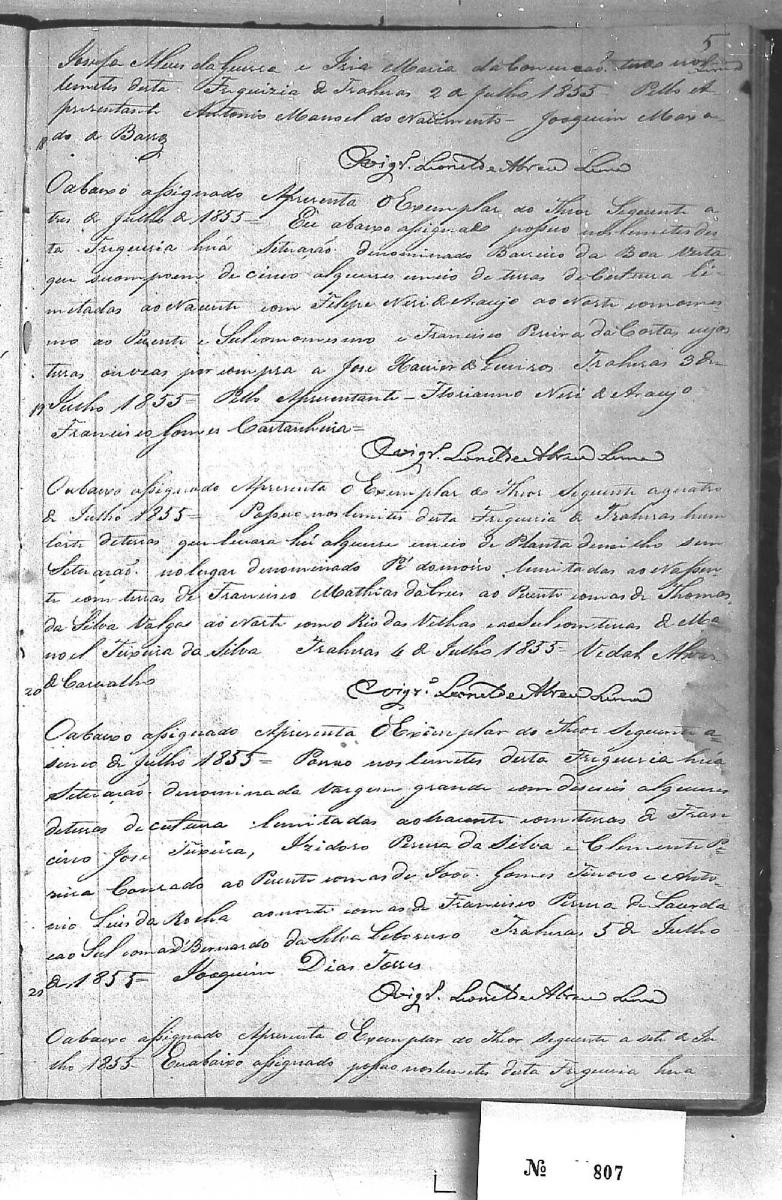 5
Josefa Alves da Guerra e Iria Maria da Conceição tudo nos
lemetes desta Freguizia de Trahiras 2 de Julho 1855 Pello A
prezentante Antonio Manoel do Nacimento Joaquim
18 do de Barros
O Vigrº. Leonel de Abreu Lima
O abaixo assignado Aprezenta o Exemplar do Theor Seguente a
tres de Julho de 1855= Eu abaixo assignado possuo nos lemetes des
ta Freguezia huã Setuação denominado Barreiro da Boa Vista
que se compoem de cinco alqueres e meio de terras de Cultura li
metadas ao Nacente com Felipe Neri de Araujo ao Norte com o mes
mo ao Poente e Sul com o mesmo e Francisco Pereira da Costa cujas
terras ouve as por compra a Jose Xavier de Trahiras 3 de
19 Julho 1855= Pello Aprezentante= Florianno Neri de Araujo
Francisco Gomes Castanheira=
O Vigrº. Leonel de Abreu Lima
O abaixo assignado Aprezenta o Exemplar do Theor Seguente a quatro
de Julho 1855= Possuo nos lemites desta Freguezia de Trahiras hum
corte de terras que levara hú alquere e meio de Planta de milho sem
Setuação no lugar denominado Pé do morro lemitadas ao Nassen
te com terras de Francisco Mathias da Cruz ao Poente com as de Thomas
da Silva Valgas ao Norte com o Rio das Velhas e ao Sul com terras de Ma
noel Teixeira da Silva Trahiras 4 de Julho 1855= Vidal Alves
20 de Carvalho
O Vigrº. Leonel de Abreu Lima
O abaixo assignado Aprezenta o Exemplar do Theor Seguente a
sinco de Julho 1855= Possuo nos lemetes desta Freguezia huã
Setuação denominada Vargem grande com deseseis alqueres
de terras de cultura lemitadas ao nacente com terras de Fran
cisco Jose Teixeira, Izidoro Pereira da Silva e Clemente Pe
reira Conrado ao Poente com as de João Gomes e Anto
nio Luis da Rocha ao norte com as de Francisco Pereira de Lacerda
e ao Sul com a d'Bernardo da Silva Trahiras 5 de Julho
20 de 1855= Joaquim Dias Torres
O Vigrº. Leonel de Abreu Lima
O abaixo assignado Aprezenta o Exemplar do Theor seguente a sete de Ju
lho 1855 Eu abaixo assignado possuo nos lemetes desta Freguezia huã
Nº 807